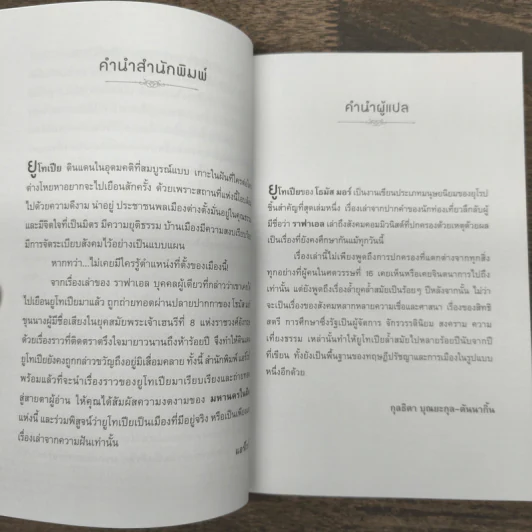 คำนำสำนักพิมพ์
ยูโทเปีย ดินแดนในอุดมคติที่สมบูรณ์แบบ เกาะในฝันที่ใคร
ต่างโหยหาอยากจะไปเยือนสักครั้ง ด้วยเพราะสถานที่แห่งนี้
ไปด้วยความดีงาม น่าอยู่ ประชาชนพลเมืองต่างตั้งมั่นอยู่ในคุณธรรม
และมีจิตใจที่เป็นมิตร มีความยุติธรรม บ้านเมืองมีความสงบเรียบร้อย
มีการจัดระเบียบสังคมไว้อย่างเป็นแบบแผน
หากทว่า...ไม่เคยมีใครรู้ตำแหน่งที่ตั้งของเมืองนี้!
จากเรื่องเล่าของ ราฟาเอล บุคคลผู้เดียวที่กล่าวว่าเขา
ไปเยือนยูโทเปียมาแล้ว ถูกถ่ายทอดผ่านปลายปากกาของ โธมัส
ขุนนางผู้มีชื่อเสียงในยุคสมัยพระเจ้าเฮนรีที่ 8 แห่งราชวงศ์
ด้วยเรื่องราวที่ติดตราตรึงใจมายาวนานถึงห้าร้อยปี จึงทำให้
ยูโทเปียยังคงถูกกล่าวขวัญถึงอยู่มิเสื่อมคลาย ทั้งนี้ สำนักพิมพ์
พร้อมแล้วที่จะนำเรื่องราวของยูโทเปียมาเรียบเรียงและถ่ายทอด
สู่สายตาผู้อ่าน ให้คุณได้สัมผัสความงดงามของ มหานครในฝัน
แห่งนี้ และร่วมพิสูจน์ว่ายูโทเปียเป็นเมืองที่มีอยู่จริง หรือเป็นเพียง
เรื่องเล่าจากความฝันเท่านั้น
คำนำผู้แปล
ยูโทเปียของ โธมัส มอร์ เป็นงานเขียนประเภทมนุษยนิยมของยุโรป
ชิ้นสำคัญที่สุดเล่มหนึ่ง เรื่องเล่าจากปากคำของนักท่องเที่ยวลึกลับผู้
มีชื่อว่า ราฟาเอล เล่าถึงสังคมคอมมิวนิสต์ที่ปกครองด้วยเหตุด้วยผล
เป็นเรื่องที่ยังคงศึกษากันแม้ทุกวันนี้
เรื่องเล่านี้ไม่เพียงพูดถึงการปกครองที่แตกต่างจากทุกสิ่ง
ทุกอย่างที่ผู้คนในศตวรรษที่ 16 เคยเห็นหรือเคยจินตนาการไปถึง
เท่านั้น แต่ยังพูดถึงเรื่องล้ำยุคล้ำสมัยเป็นร้อยๆ ปีหลังจากนั้น ไม่ว่า
จะเป็นเรื่องของสังคมหลากหลายความเชื่อและศาสนา เรื่องของสิทธิ
สตรี การศึกษาซึ่งรัฐเป็นผู้จัดการ จักรวรรดินิยม สงคราม ความ
เที่ยงธรรม เหล่านั้นทำให้ยูโทเปียล้ำสมัยไปหลายร้อยปีนับจากปี
ที่เขียน ทั้งยังเป็นพื้นฐานของทฤษฎีปรัชญาและการเมืองในรูปแบบ
หนึ่งอีกด้วย
กุลธิดา บุณยะกุล-ดันนากิ้น